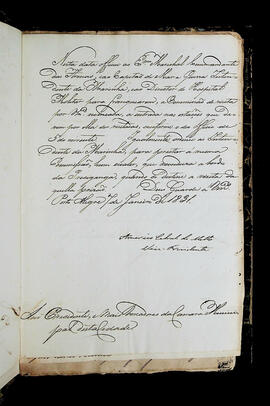 Nesta data officio ao Exmo Marechal Commandante
das Armas, ao Capitão de Mar e Guerra Inten-
dente da Marinha, ao Director do Hospital
Militar para franquearem a Commissão de visita
por VSa nomeada, a entrada nas estações que de-
rem por ella ser visitadas, conforme o do officio de
3 do corrente. Igualmente Ordeno ao Inten-
dente da Marinha, para apromptar a mesma
Commissão, hum escaler, que conduza a bordo
da Presiganga, quando se destine a visita da-
quella prisão. Deus Guarde a VSa
Porto Alegre 7 de Janeiro de 1831.
Americo Cabral de Mello
Vice-Presidente
Snrs Presidente, e Mais Vereadores da Camara Munici-
pal desta Cidade